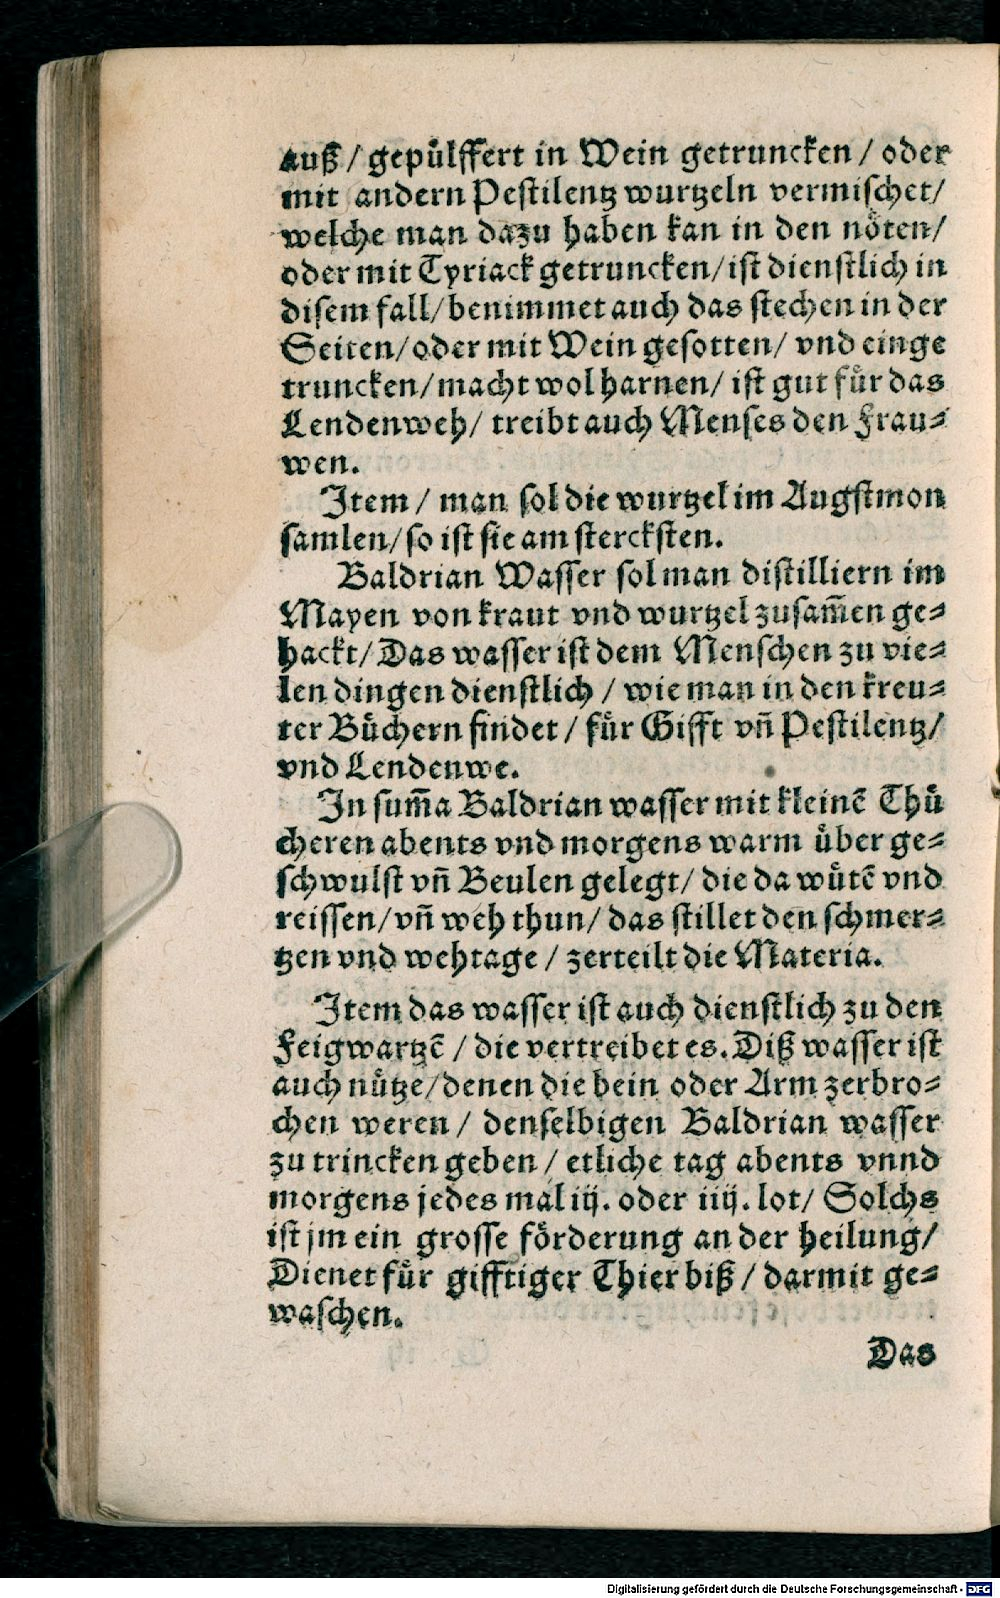 auß / gepuͤlffert in Wein getruncken / oder
mit andern Pestilentz wurtzeln vermischet/
welche man dazu haben kan in den noͤten/
oder mit Tyriack getruncken/ ist dienstlich in
disem fall/ benimmet auch das stechen in der
Seiten/ oder mit Wein gesotten/ vnd einge
truncken/ macht wol harnen/ ist gut fuͤr das
Lendenweh/ treibt auch Menses den Frau⸗
wen.
Item / man sol die wurtzel im Augstmon
samlen/ so ist sie am stercksten.
Baldrian Wasser sol man distilliern im
Mayen von kraut vnd wurtzel zusam̃en ge⸗
hackt/ Das wasser ist dem Menschen zu vie⸗
len dingen dienstlich / wie man in den kreu⸗
ter Buͤchern findet / fuͤr Gifft vñ Pestilentz/
vnd Lendenwe.
In sum̃a Baldrian wasser mit kleinẽ Thuͤ
cheren abents vnd morgens warm uͤber ge⸗
schwulst vñ Beulen gelegt/ die da wuͤtẽ vnd
reissen/ vñ weh thun/ das stillet den schmer⸗
tzen vnd wehtage / zerteilt die Materia.
Item das wasser ist auch dienstlich zu den
Feigwartzẽ / die vertreibet es. Diß wasser ist
auch nuͤtze/ denen die bein oder Arm zerbro⸗
chen weren / denselbigen Baldrian wasser
zu trincken geben / etliche tag abents vnnd
morgens jedes mal iij. oder iiij. lot/ Solchs
ist jm ein grosse foͤrderung an der heilung/
Dienet fuͤr gifftiger Thier biß / darmit ge⸗
waschen.
Das
Digitalisierung gefördert durch die Deutsche Forschungsgemeinschaft - DFG